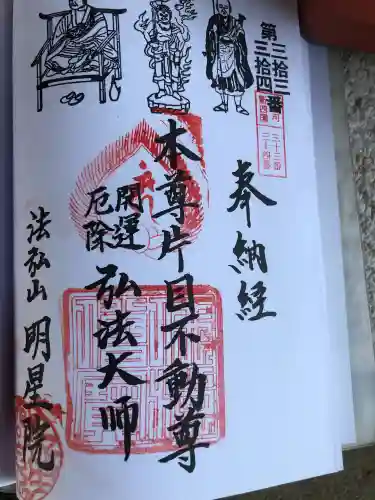 第三拾三番
三拾四
三十三番
三十四番
奉納経
本尊片目不動尊
開運
厄除
弘法大師
法弘山 明星院